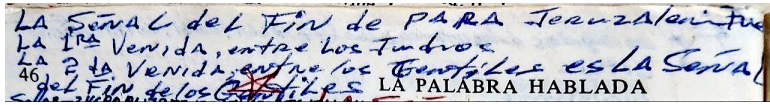 LA SEÑAL del FiN de PARA Jeruzalem Fue
LA 1RA Venida, entre Los Judios
LA 2dA Venida, entre los Gentiles es LA Señal
46 del FiN de los Gentiles LA PALABRA HABLADA